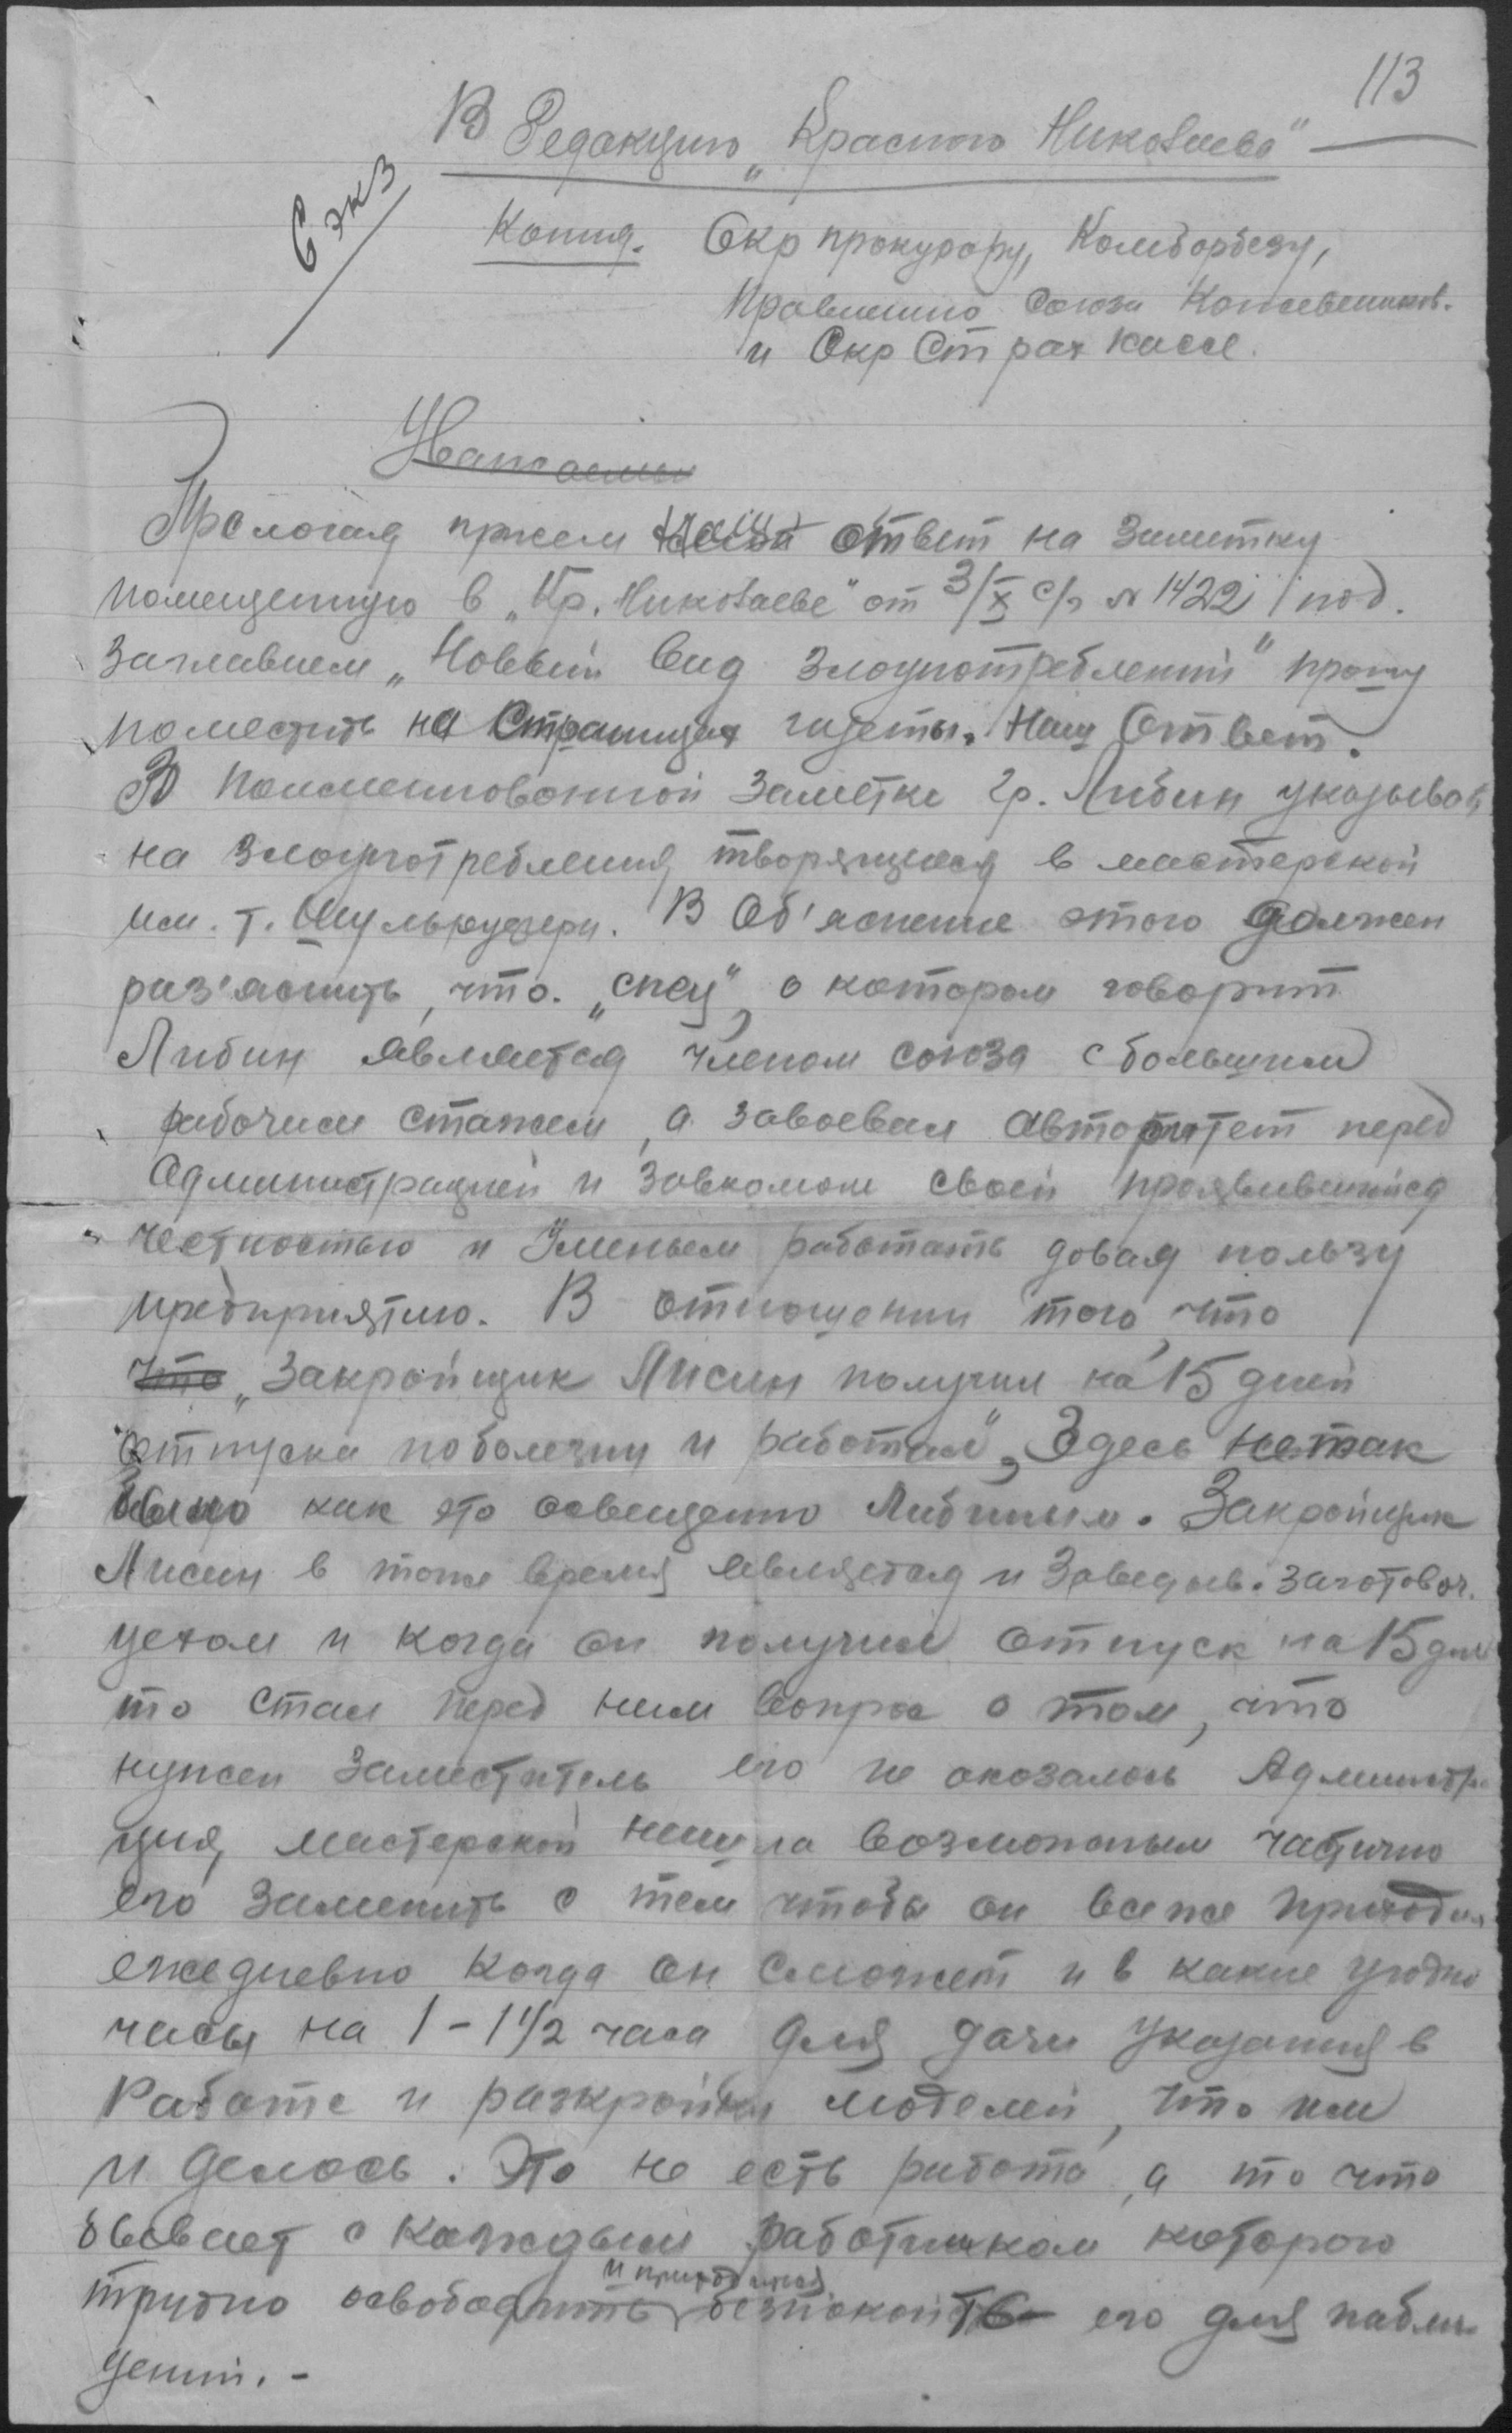 113
В Редакцию „Красного Николаева"
6 экз
Копия. Окр прокурору, Комборбезу,
Правлению Союза Кожевенников.
и Окр Страх кассе.
Уважаемы
Прелогая прием наш ответ на заметку
помещенную в „Кр. Николаеве" от 3/X с/г № 1422 под.
заглавием „Новый вид злоупотреблений" прошу
поместить на страницах газеты. Наш Ответ.
В поименованной заметке гр. Либин указывает
на злоупотребления, творящиеся в мастерской
им. т. Шульрудера. В Об'яснение этого должен
раз'яснить, что. „спец", о котором говорит
Либин является членом союза с большим
рабочим стажем, а завоевал авторитет перед
Администрацией и завкомом своей проявившийся
честностью и уменьем работать довая пользу
предприятию. В отношении того, что
что „Закройщик Лисин получил на 15 дней
отпуска по болезни и работал", Здесь не так
было как это освещенно Либиным. Закройщик
Лисин в тоже время является и Заведыв. заготовоч.
цехом и когда он получил отпуск на 15 дней
то стал перед ним вопрос о том, что
нужен заместитель его не оказалось Администра
ция, мастерской нашла возможным частично
его заменить с тем чтобы он все же приходил
ежедневно когда он сможет и в какие угодно
часы на 1 - 1 1/2 часа для дачи указания в
Работе и раскройки моделей, что им
и делось. Это не есть работа, а то что
бывает с каждым работником которого
трудно освободить и приходится безпокоить его для наблю
дений. -